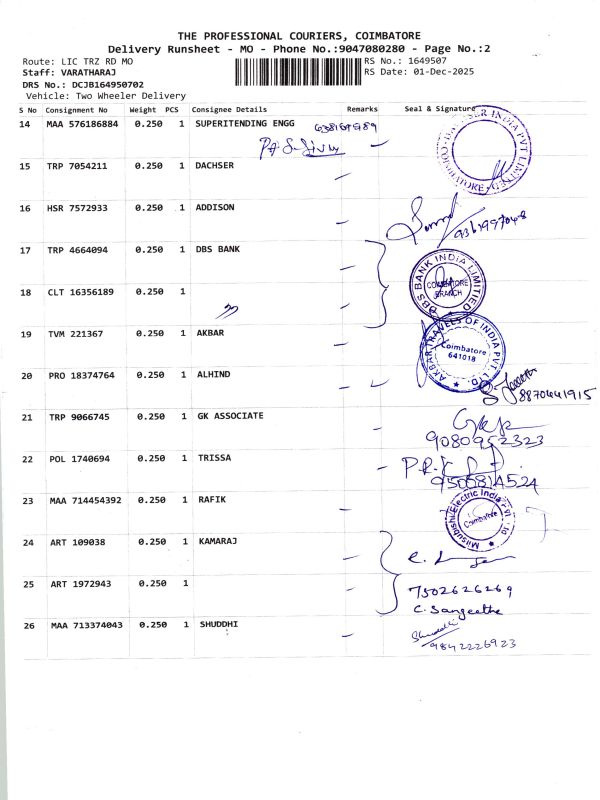 THE PROFESSIONAL COURIERS, COIMBATORE
Delivery Runsheet - MO - Phone No.:9047080280 - Page No.:2
Route: LIC TRZ RD MO RS No.: 1649507
Staff: VARATHARAJ RS Date: 01-Dec-2025
DRS No.: DCJB164950702
Vehicle: Two Wheeler Delivery
S No Consignment No Weight PCS Consignee Details Remarks Seal & Signature
14 MAA 576186884 0.250 1 SUPERITENDING ENGG
15 TRP 7054211 0.250 1 DACHSER
16 HSR 7572933 0.250 1 ADDISON
17 TRP 4664094 0.250 1 DBS BANK
DBS BANK INDIA LIMITED
COIMBATORE
BRANCH
18 CLT 16356189 0.250 1
19 TVM 221367 0.250 1 AKBAR
AKBAR TRAVELS OF INDIA PVT. LTD.
Coimbatore
641018
20 PRO 18374764 0.250 1 ALHIND
8870441915
21 TRP 9066745 0.250 1 GK ASSOCIATE
9080952323
22 POL 1740694 0.250 1 TRISSA
9500814524
23 MAA 714454392 0.250 1 RAFIK
Mitsubishi Electric India Pvt. Ltd
Coimbatore
24 ART 109038 0.250 1 KAMARAJ
25 ART 1972943 0.250 1
7502626269
C. Sangeetha
26 MAA 713374043 0.250 1 SHUDDHI
9842226923